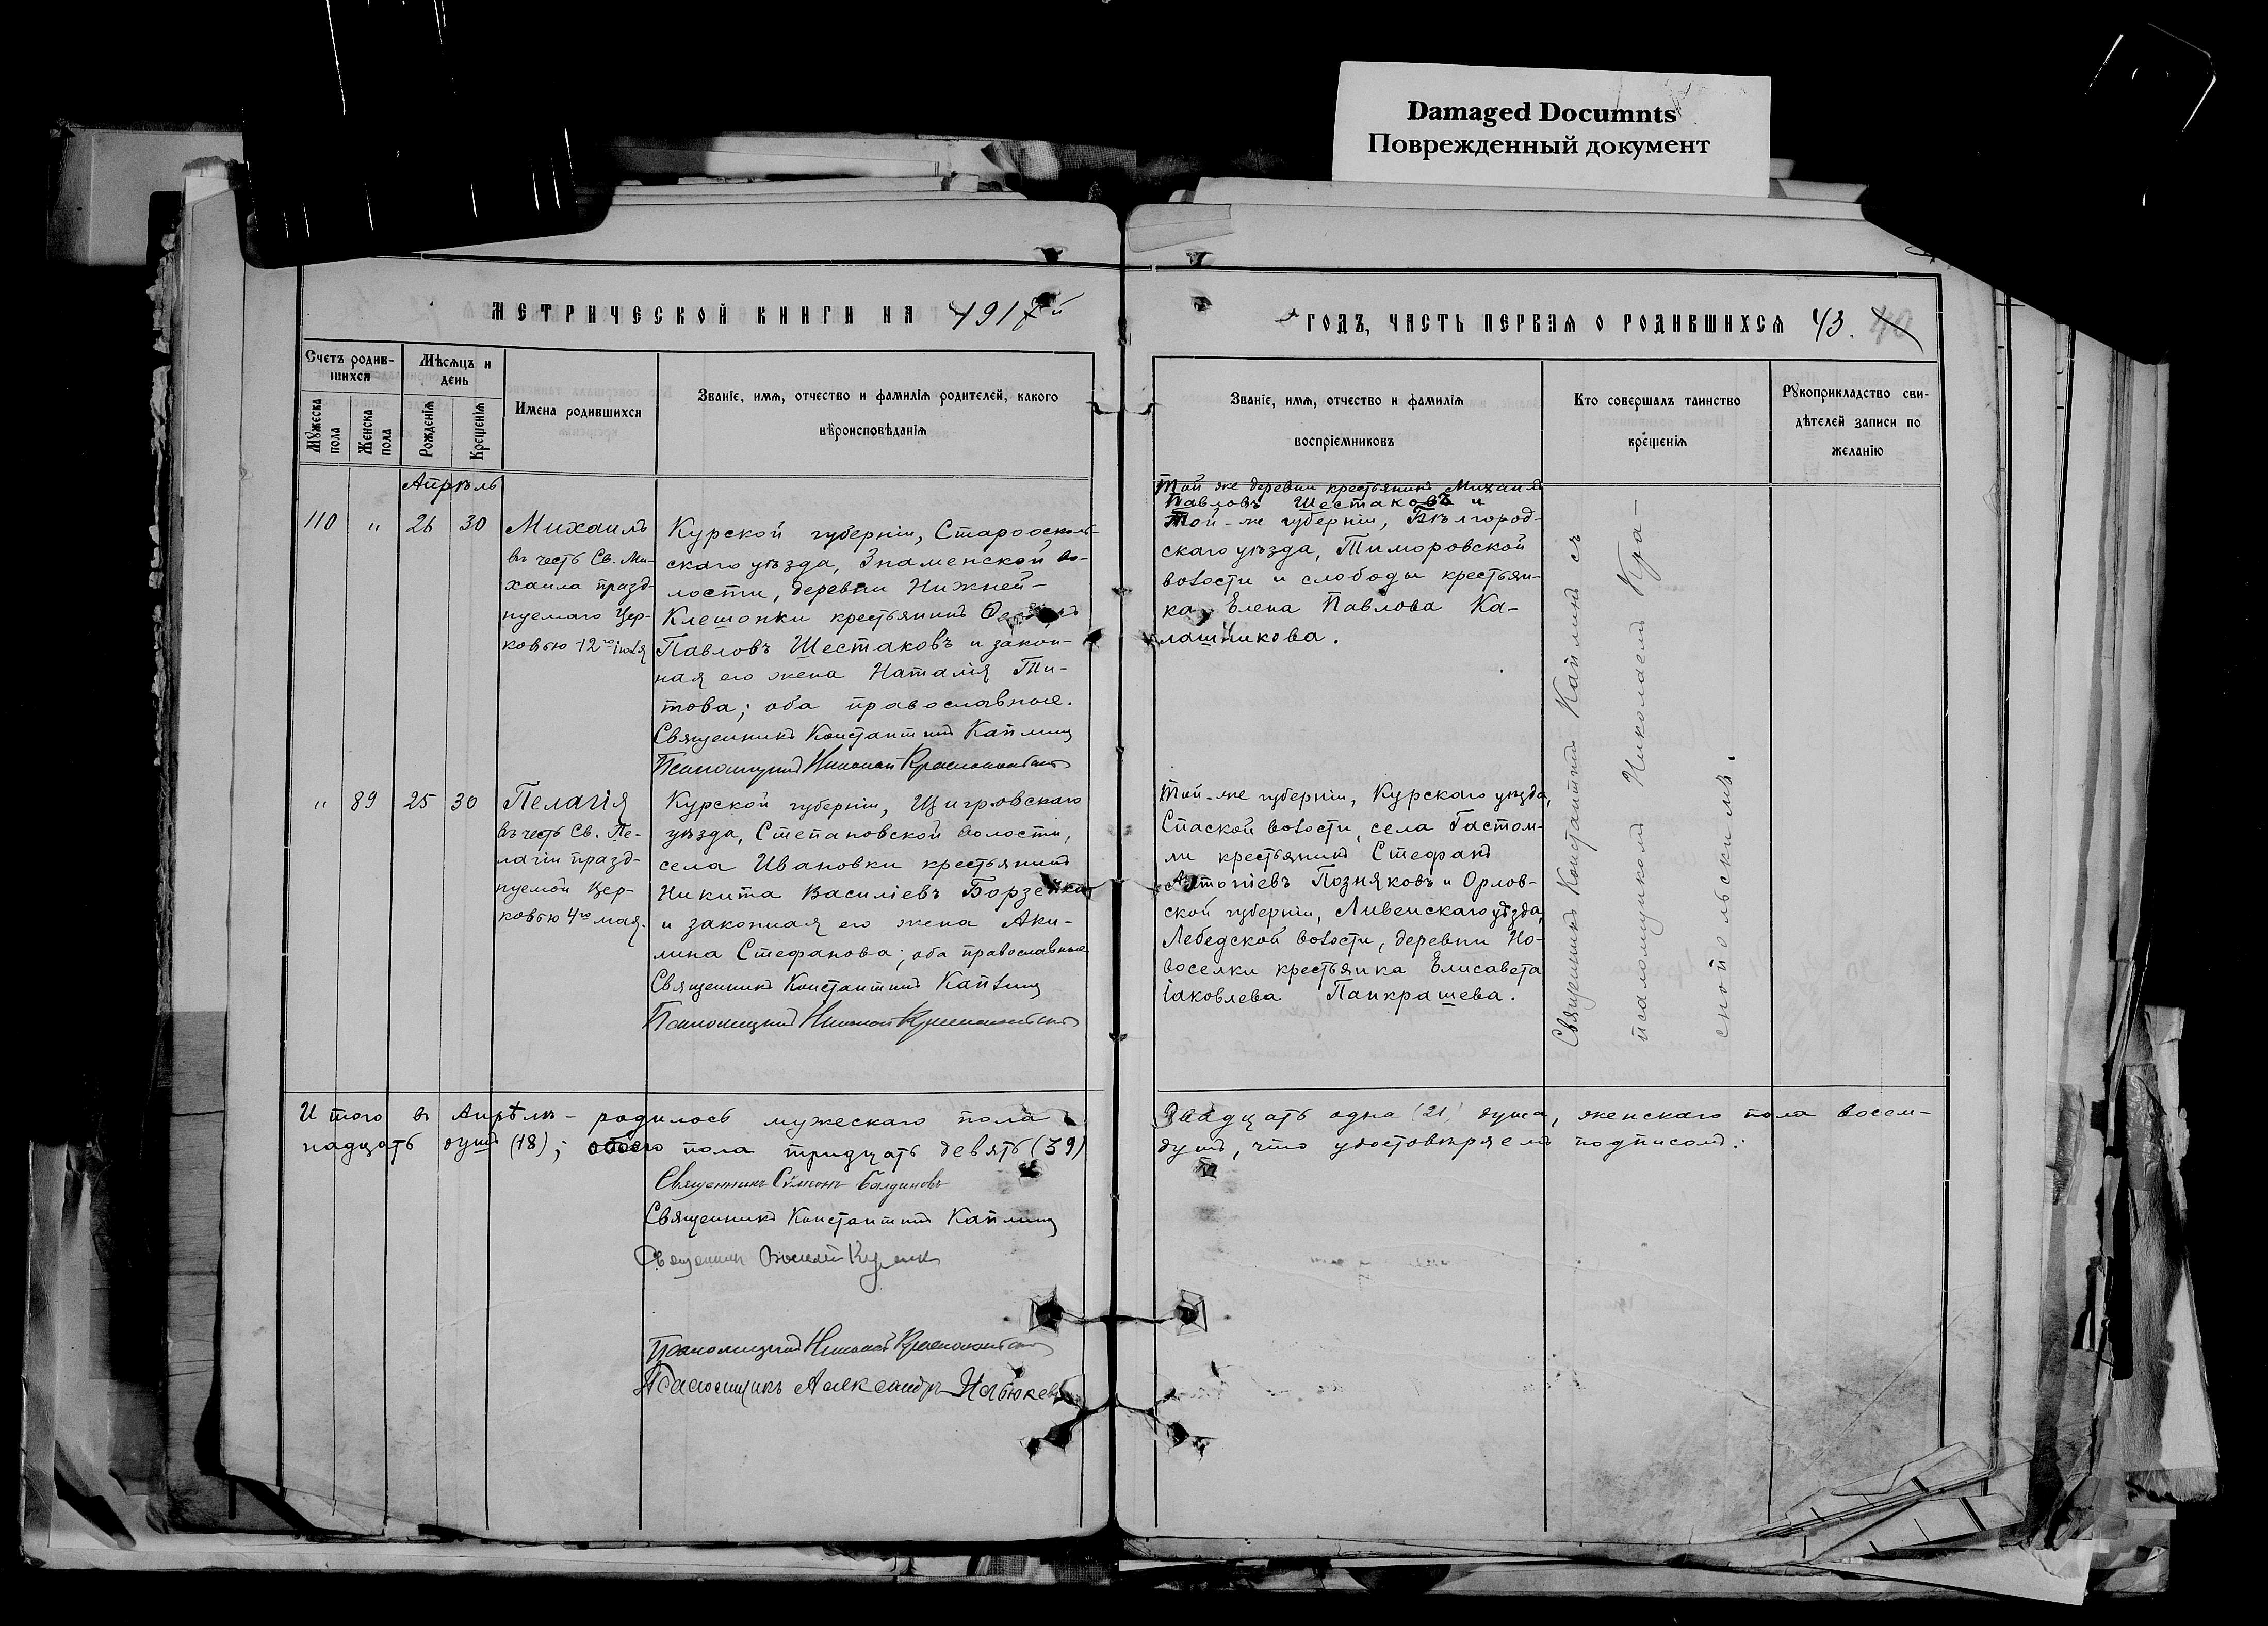 Damaged Documnts
Поврежденный документ
МЕТРИЧЕСКОЙ КНИГИ НА 1917й
ГОДЪ, ЧАСТЬ ПЕРВАЯ О РОДИВШИХСЯ 43. 40
Счетъ родив-
шихся
Мужеска пола
Женска пола
Мѣсяцъ и
день
Рожденія
Крещенія
Имена родившихся
Званіе, имя, отчество и фамилія родителей, какого
вѣроисповѣданія
Званіе, имя, отчество и фамилія
воспріемниковъ
Кто совершалъ таинство
крещенія
Рукоприкладство сви-
дѣтелей записи по
желанію
Апрѣль
110 " 26 30
Михаилъ
въ честь Св. Ми-
хаила празд-
нуемаго Цер-
ковью 12го іюля
Курской губерніи, Староосколь-
скаго уѣзда, Знаменской во-
лости, деревни Нижней-
Клешонки крестьянинъ
Павловъ Шестаковъ и закон-
ная его жена Наталія Ти-
това; оба православные.
Священникъ Константинъ Каплинъ
Псаломщикъ Николай
Той же деревни крестьянинъ Михаилъ
Павловъ Шестаковъ и
Той-же губерніи, Бѣлгород-
скаго уѣзда, Тиморовской
волости и слободы крестьян-
ка Елена Павлова Ка-
лашникова.
Священникъ Константинъ Каплинъ съ
псаломщикомъ Николаемъ Кра-
снопольскимъ.
" 89 25 30
Пелагія
въ честь Св. Пе-
лагіи празд-
нуемой Цер-
ковью 4го мая.
Курской губерніи, Щигровскаго
уѣзда, Степановской волости,
села Ивановки крестьянинъ
Никита Василіевъ Борзенко
и законная его жена Аки-
лина Стефанова; оба православные
Священникъ Константинъ Каплинъ
Псаломщикъ Николай
Той-же губерніи, Курскаго уѣзда,
Спаской волости, села Гастом-
ли крестьянинъ Стефанъ
Антоніевъ Позняковъ и Орлов-
ской губерніи, Ливенскаго уѣзда,
Лебедской волости, деревни Но-
воселки крестьянка Елисавета
Іаковлева Панкрашева.
Итого въ Апрѣлѣ - родилось мужескаго пола
двадцать одна (21) душа, женскаго пола восем-
надцать душъ (18); обоего пола тридцать девять (39)
душъ, что удостовѣряемъ подписомъ:
Священникъ Сѵмеонъ
Священникъ Константинъ Каплинъ
Священникъ
Псаломщикъ Николай
Псаломщикъ Александръ